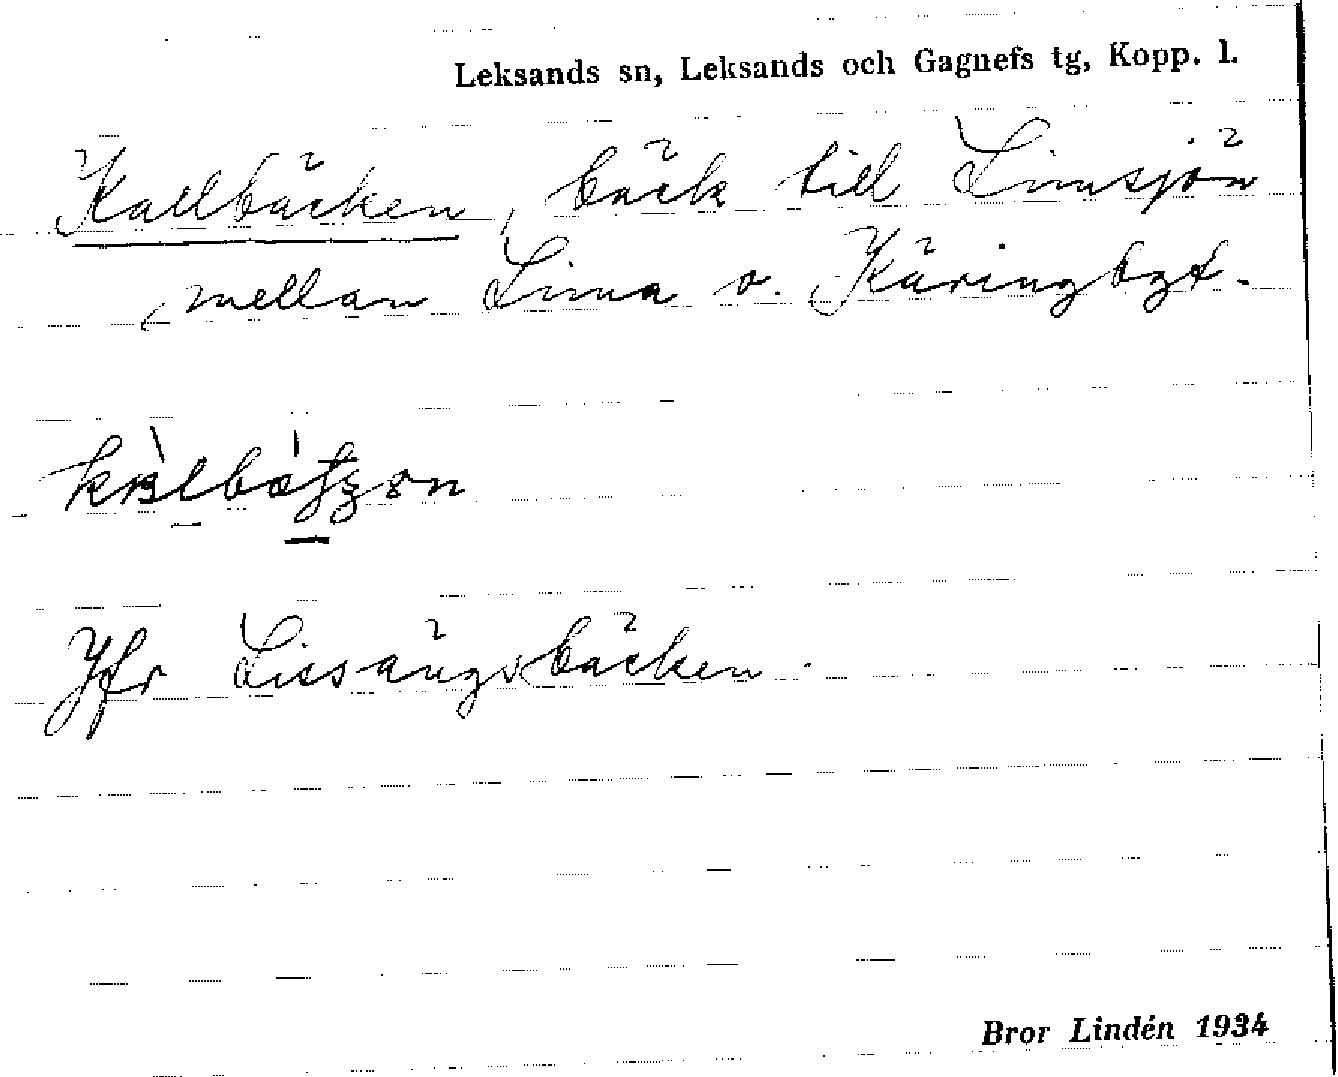 Leksands sn, Leksands och Gagnefs tg, Kopp. l.
Kallbäcken, bäck till Limsjön
mellan Lima o. Käringbgt.
Jfr Lissängsbäcken.
Bror Lindén 1934